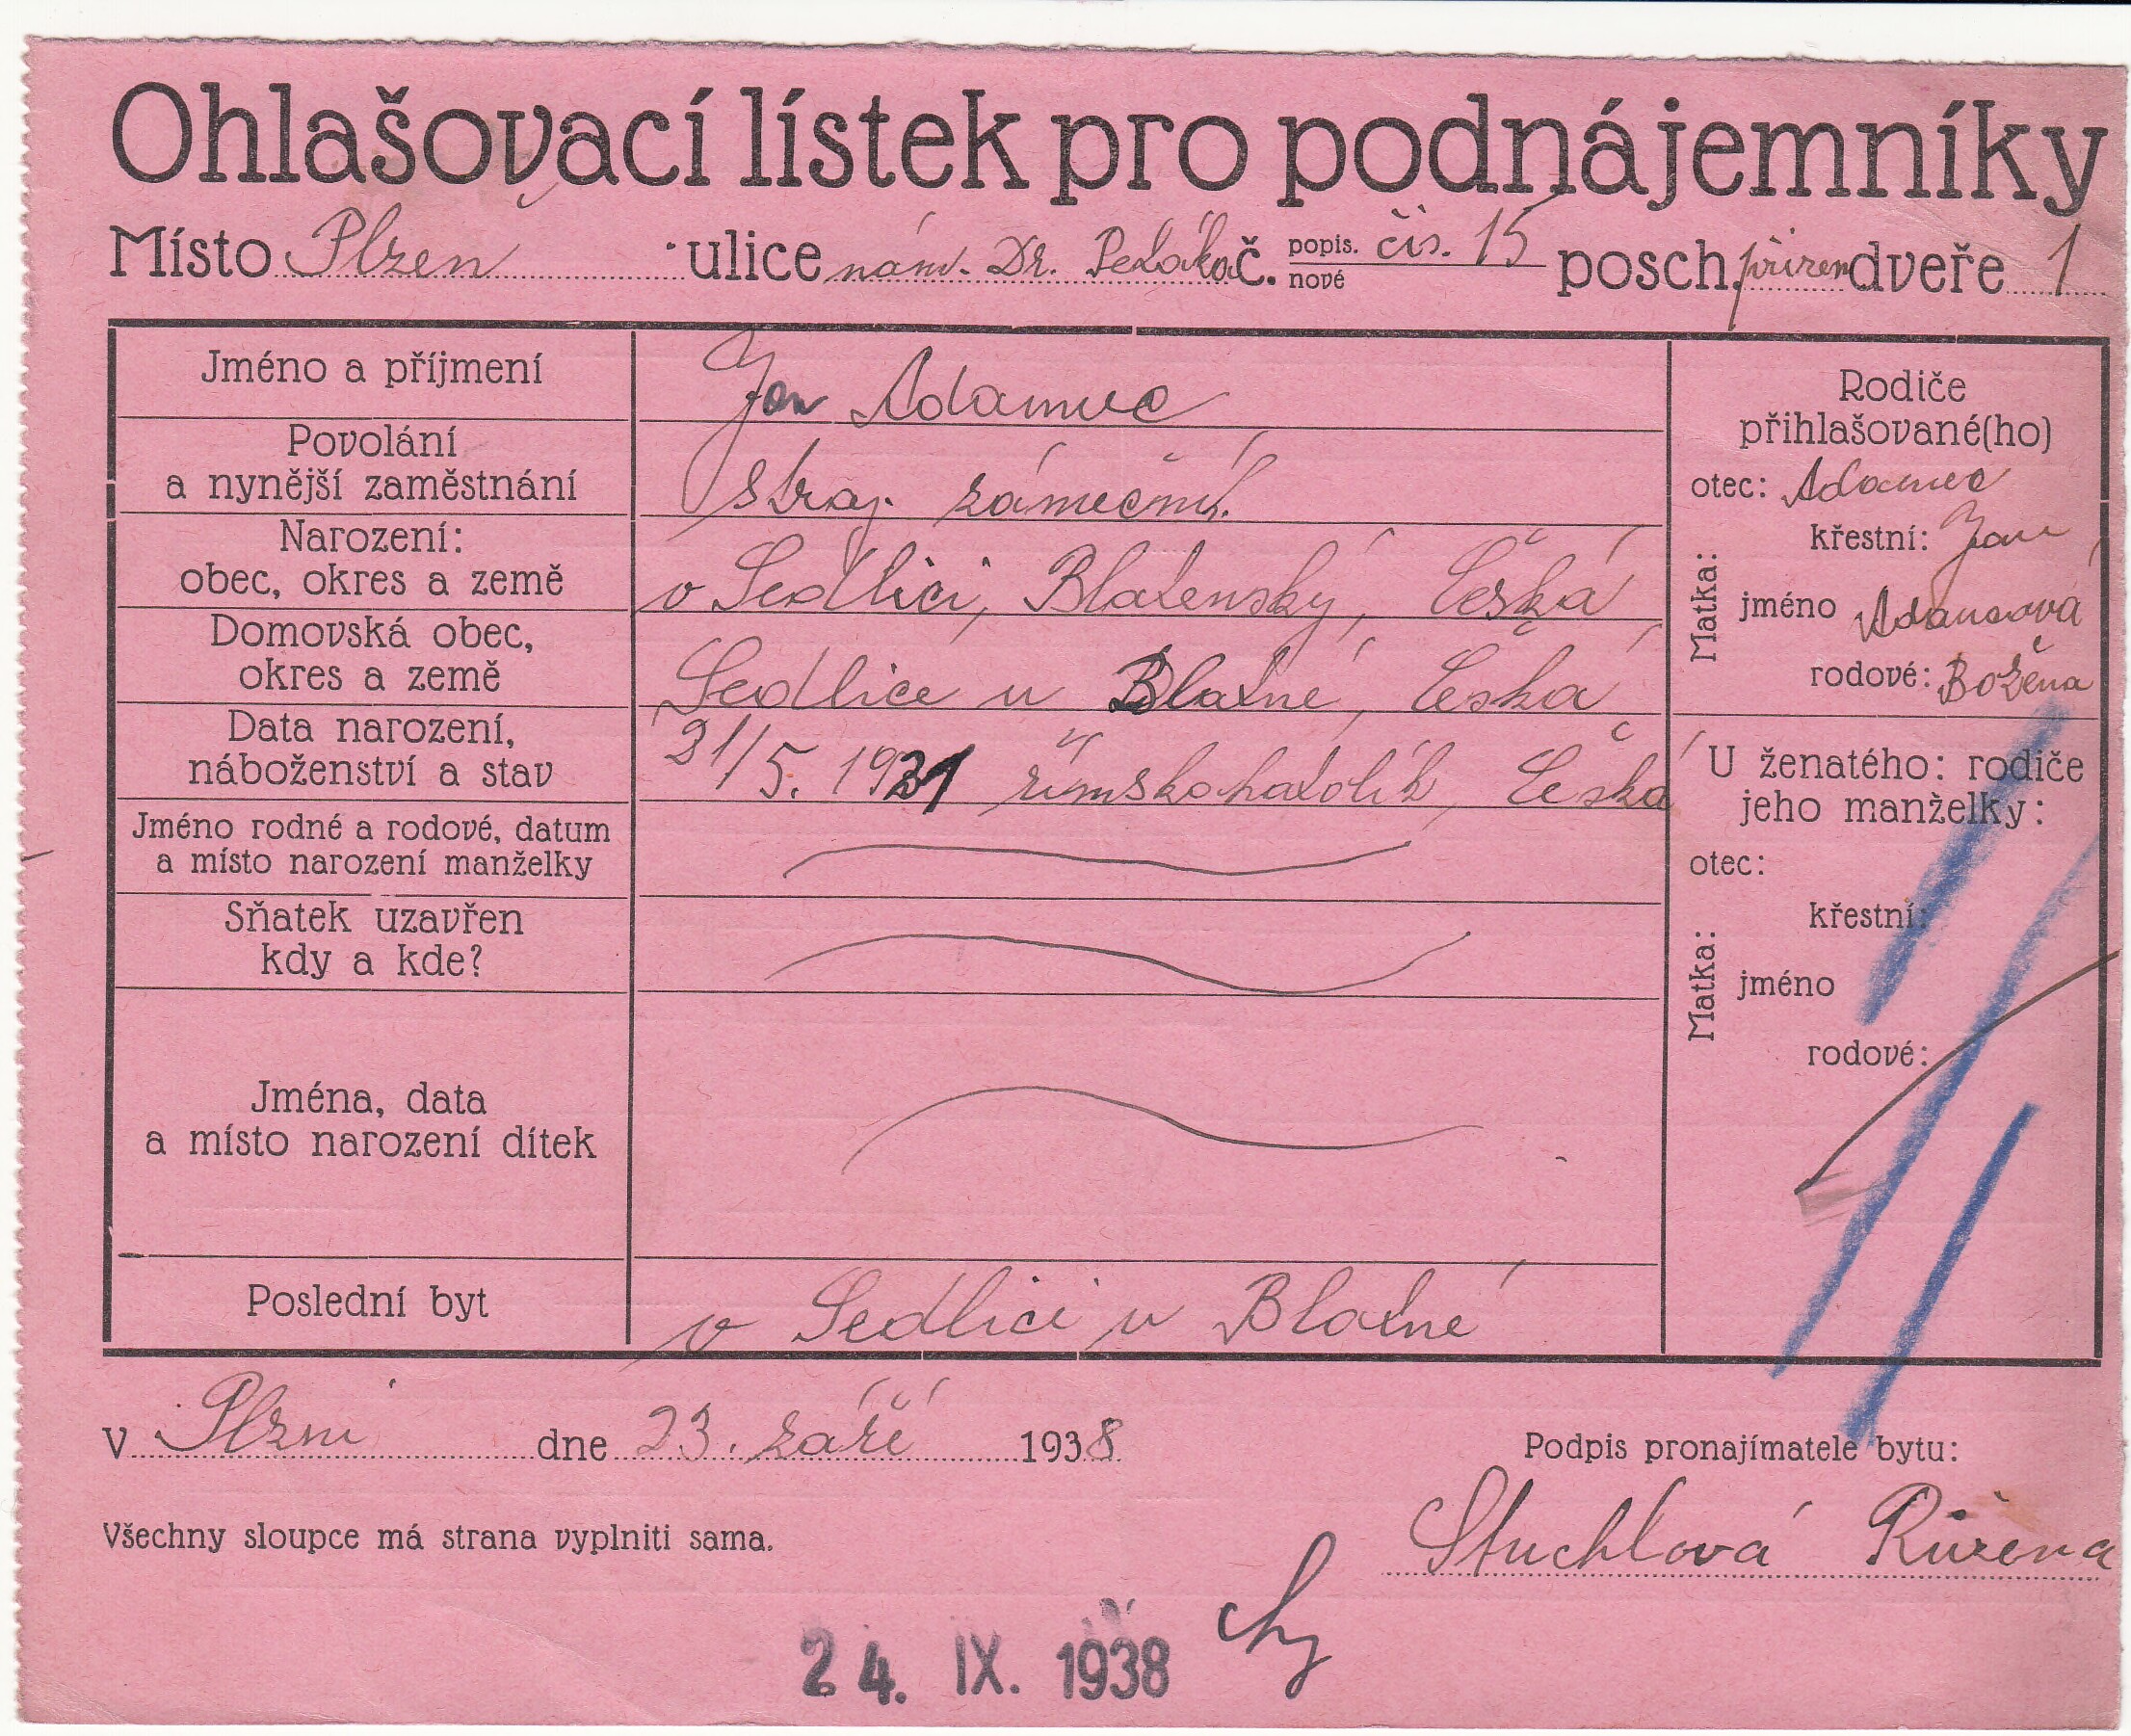 Ohlašovací lístek pro podnájemníky
Místo Plzeň ulice nám. Dr. Petáka č. popis. nové čís. 15 posch. přízem dveře 1
Jméno a příjmení
Jan Adamec
Povolání
a nynější zaměstnání
stroj. zámečník.
Narození:
obec, okres a země
v Sedlici, Blatenský, Česká
Domovská obec,
okres a země
Sedlice u Blatné, Česká
Data narození,
náboženství a stav
31/5. 1921 římskokatolík, Česká
Jméno rodné a rodové, datum
a místo narození manželky
Sňatek uzavřen
kdy a kde?
Jména, data
a místo narození dítek
Poslední byt
v Sedlici u Blatné
Rodiče
přihlašované(ho)
otec: Adamec
křestní: Jan
Matka:
jméno Adamcová
rodové: Božena
U ženatého: rodiče
jeho manželky:
otec:
křestní:
Matka:
jméno
rodové:
V Plzni dne 23. září 1938
Podpis pronajímatele bytu:
Všechny sloupce má strana vyplniti sama.
Stuchlová Růžena
24. IX. 1938